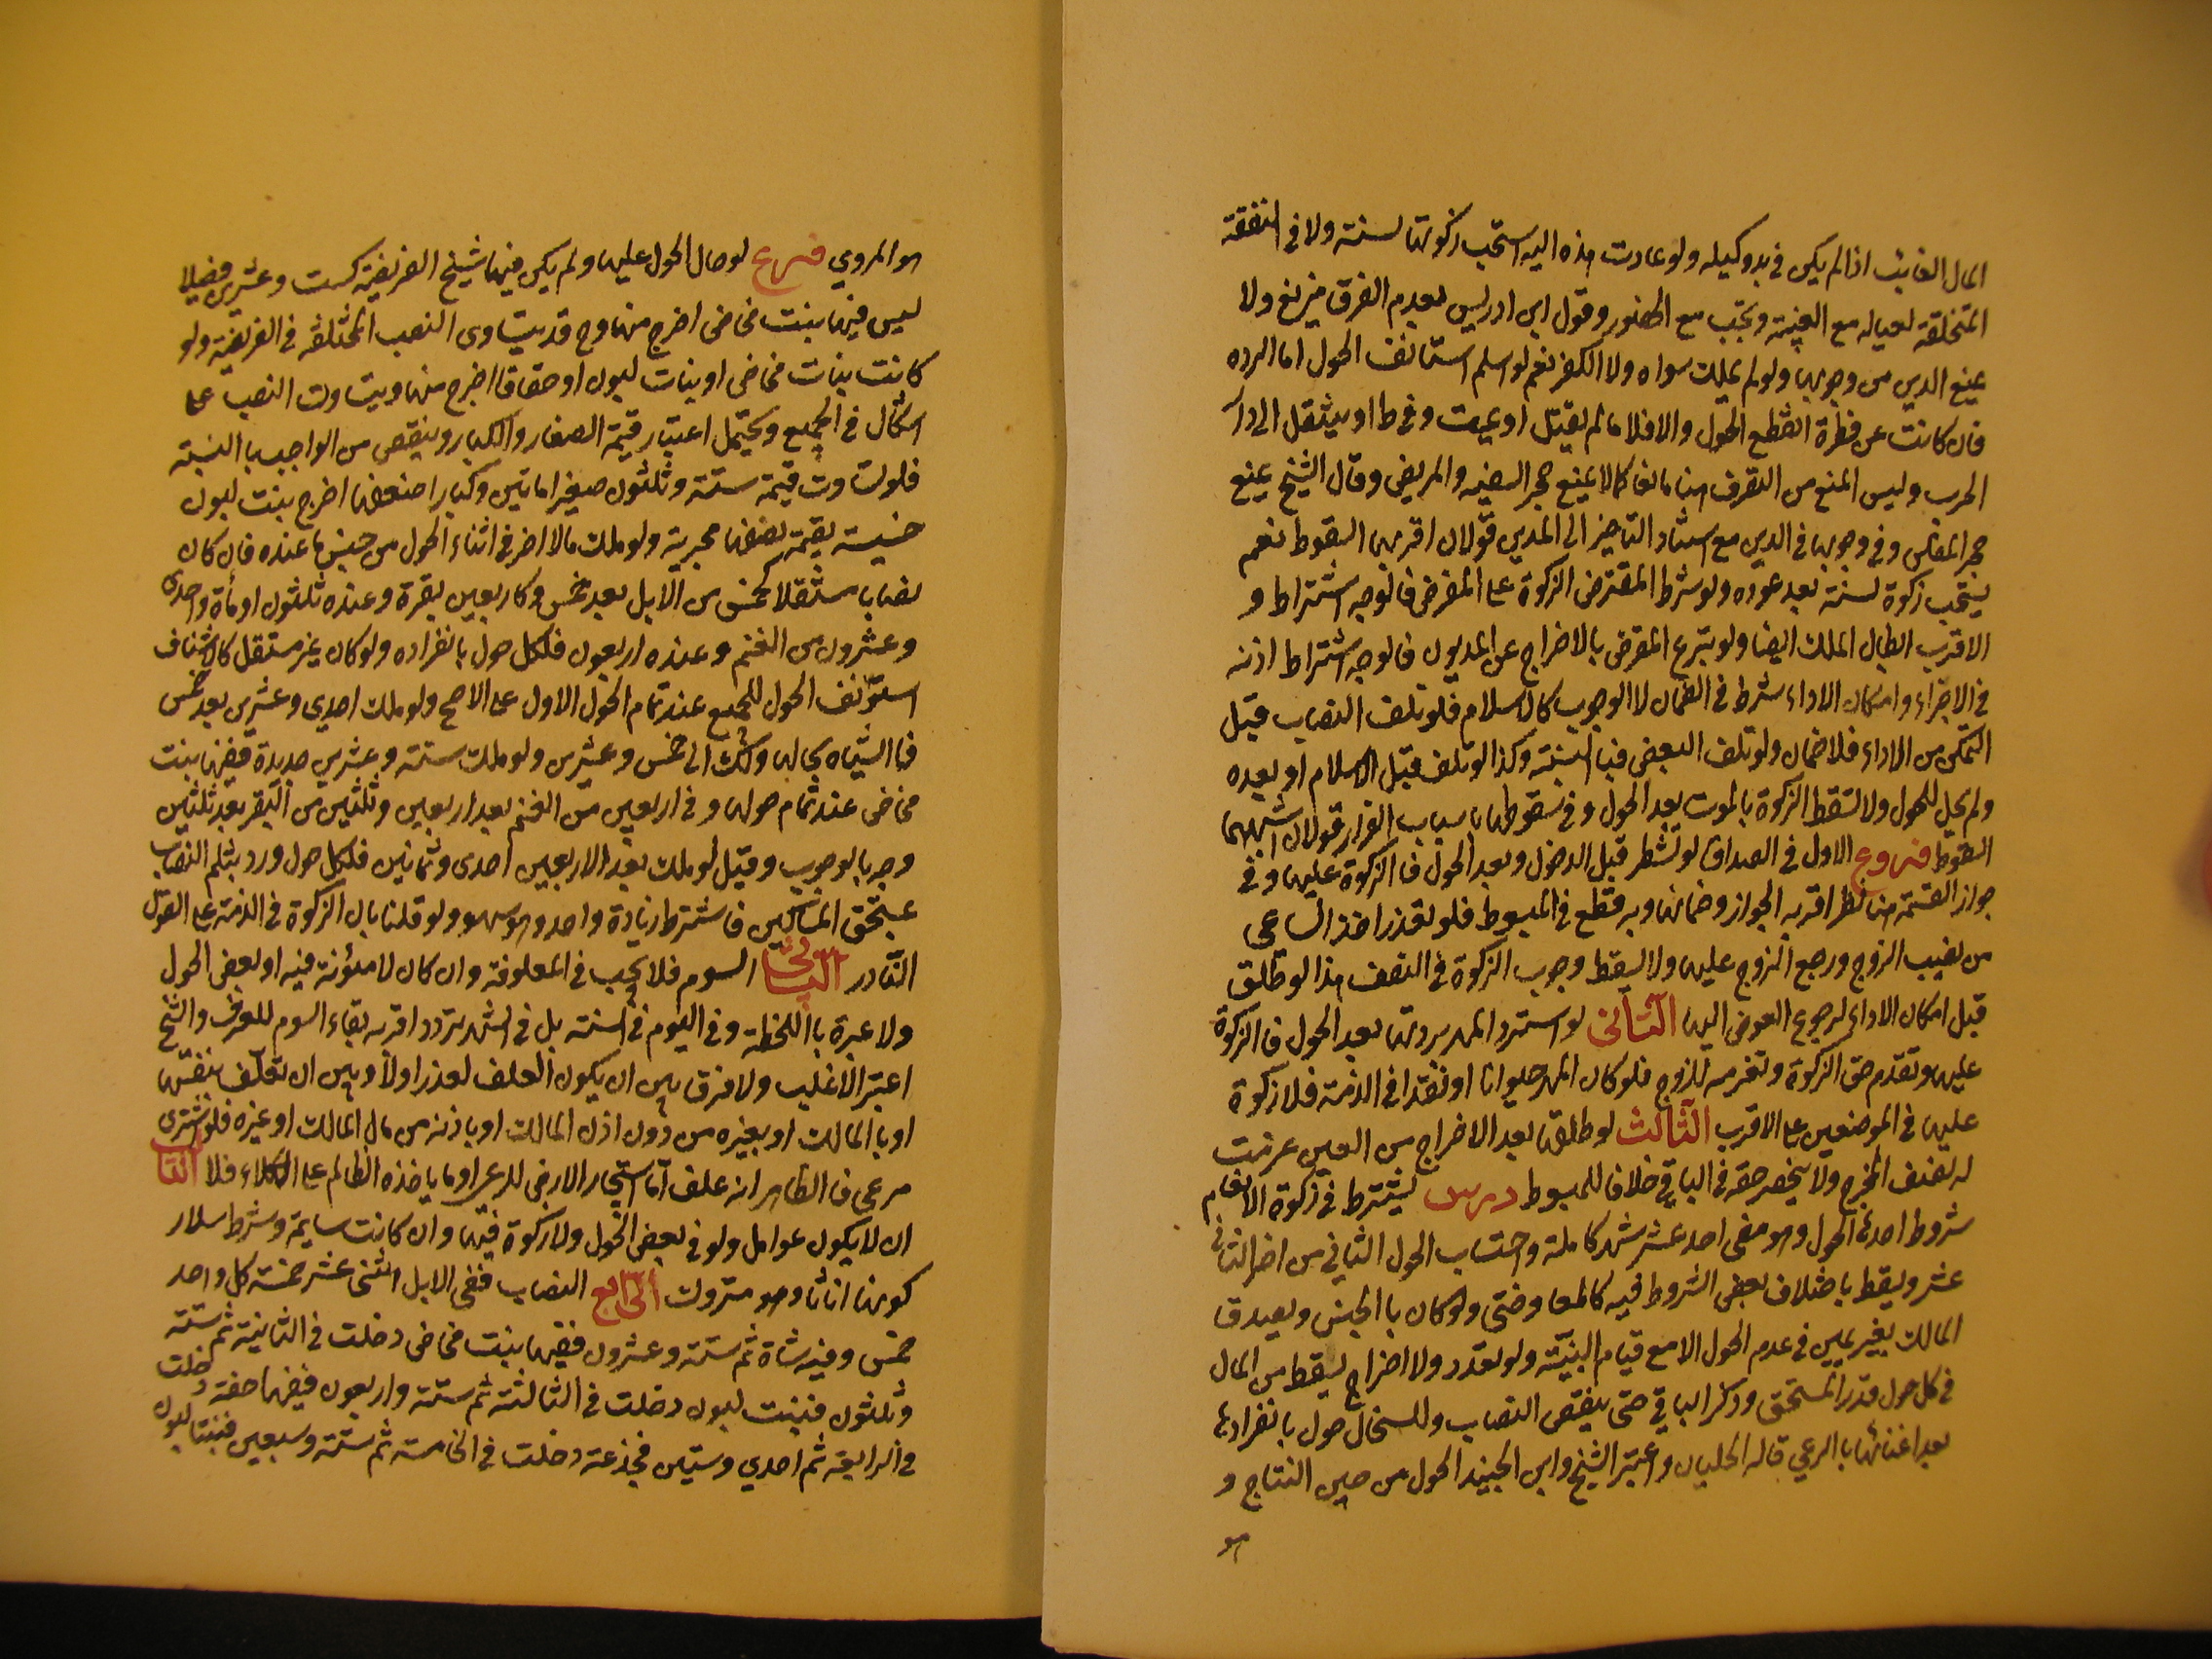 المال الغائب اذا لم يكن في يد وكيله ولو عادت هذه اليه استحب زكوتها لسنته ولا في النفقة
المتخلفة لعياله مع الغيبة وتجب مع الحضور وقول ابن ادريس بعدم الفرق مزيف ولا
يمنع الدين من وجوبها ولو لم يملك سواه ولا الكفر نعم لو اسلم استانف الحول اما الرده
فان كانت عن فطرة انقطع الحول والا فلا ما لم يقتل او يموت وفي ط او ينتقل الى دار
الحرب وليس المنع من التصرف هنا مانعا كما لا يمنع حجر السفيه والمريض وقال الشيخ يمنع
حجر المفلس وفي وجوبها في الدين مع استناد التاخير الى المدين قولان اقربهما السقوط نعم
يستحب زكوة لسنته بعد عوده ولو شرط المقترض الزكوة على المقرض فالوجه اشتراط و
الاقرب ابطال الملك ايضا ولو تبرع المقرض بالاخراج عن المديون فالوجه اشتراط اذنه
في الاجزاء وامكان الاداء شرط في الضمان لا الوجوب كالاسلام فلو تلف النصاب قبل
التمكن من الاداء فلا ضمان ولو تلف البعض فبالنسبة وكذا لو تلف قبل الاسلام او بعده
ولم يحل الحول ولا تسقط الزكوة بالموت بعد الحول وفي سقوطها باسباب الفرار قولان اشبههما
السقوط فروع الاول في الصداق لو تشطر قبل الدخول وبعد الحول فالزكوة عليها وفي
جواز القسمة هنا نظر اقربه الجواز وضمانها وبه قطع في المبسوط فلو تعذر اخذ الساعي
من نصيب الزوج ورجع الزوج عليها ولا يسقط وجوب الزكوة في النصف هذا لو طلق
قبل امكان الاداء لرجوع العوض اليها الثاني لو استرد المهر بردتها بعد الحول فالزكوة
عليها وتقدم حق الزكوة وتغرمه للزوج فلو كان المهر حيوانا او نقدا في الذمة فلا زكوة
عليها في الموضعين على الاقرب الثالث لو طلقها بعد الاخراج من العين غرمت
له نصف المخرج ولا ينحصر حقه في الباقي خلافا للمبسوط درس يشترط في زكوة الانعام
شروط احدها الحول وهو مضي احد عشر شهر كاملة واحتساب الحول الثاني من اخر الثاني
عشر ويسقط باختلاف بعض الشروط فيه كالمعاوضتى ولو كان بالجنس ويصدق
المالك بغير يمين في عدم الحول الا مع قيام البينة ولو تعدد ولا اخراج يسقط من المال
في كل حول قدر المستحق وذكر الباقي حتى ينقص النصاب وللسخال حول بانفرادها
بعد اغنائها بالرعي قاله الحليان واعتبر الشيخ وابن الجنيد الحول من حين النتاج و
هو
هو المروي فرع لو حال الحول عليها ولم يكن فيها شيخ الفريضة كست وعشرين فصيلا
ليس فيها بنت مخاض اخرج منها وح قد يتساوى النصب المختلفة في الفريضة ولو
كانت بنات مخاض او بنات لبون او حقاقا اخرج منها ويتساوت النصب على
اشكال في الجميع ويحتمل اعتبار قيمة الصغار والكبار وينقص من الواجب بالنسبة
فلو تساوت قيمة ستة وثلثون صغيرا مايتين وكبارا ضعفها اخرج بنت لبون
خسيسة بقيمة نصفها مجزية ولو ملك مالا اخر في اثناء الحول من جنس ما عنده فان كان
نصابا مستقلا كخمس من الابل بعد خمس وكاربعين بقرة وعنده ثلثون او مأة واحدى
وعشرون من الغنم وعنده اربعون فلكل حول بانفراده ولو كان غير مستقل كالاشناف
استؤنف الحول للجميع عند تمام الحول الاول على الاصح ولو ملك احدى وعشرين بعد خمس
فالشياه بحالها وكذلك الى خمس وعشرين ولو ملك ستة وعشرين جديدة ففيها بنت
مخاض عند تمام حولها وفي اربعين من الغنم بعد اربعين وثلثين من البقر بعد ثلثين
وجه بالوجوب وقيل لو ملك بعد الاربعين احدى وثمانين فلكل حول ورد بثلم النصاب
عبتحق المساكين فاشترط زيادة واحد وهو سهو ولو قلنا بان الزكوة في الذمة على القول
النادر الثاني السوم فلا تجب في المعلوفة وان كان لا مئونة فيه او بعض الحول
ولا عبرة باللحظة وفي اليوم في السنة بل في الشهر تردد اقربه بقاء السوم للعرف والشيخ
اعتبر الاغلب ولا فرق بين ان يكون العلف لعذر اولا وبين ان تعلف بنفسها
او بالمالك او بغيره من دون اذن المالك او باذنه من مال المالك او غيره فلو اشترى
مرعى فالظاهر انه علف اما استيجار الارض للرعي او ما ياخذه الظالم على الكلاء فلا الثا
ان لا يكون عوامل ولو في بعض الحول ولا زكوة فيها وان كانت سايمة وشرط سلار
كونها اناثا وهو متروك الرابع النصاب ففي الابل اثنى عشر خمسة كل واحد
خمس وفيه شاة ثم ستة وعشرون ففيها بنت مخاض دخلت في الثانية ثم ستة
وثلثون فبنت لبون دخلت في الثالثة ثم ستة واربعون ففيها حقة دخلت
في الرابعة ثم احدى وستين فجذعة دخلت في الخامسة ثم ستة وسبعين فبنتا لبون